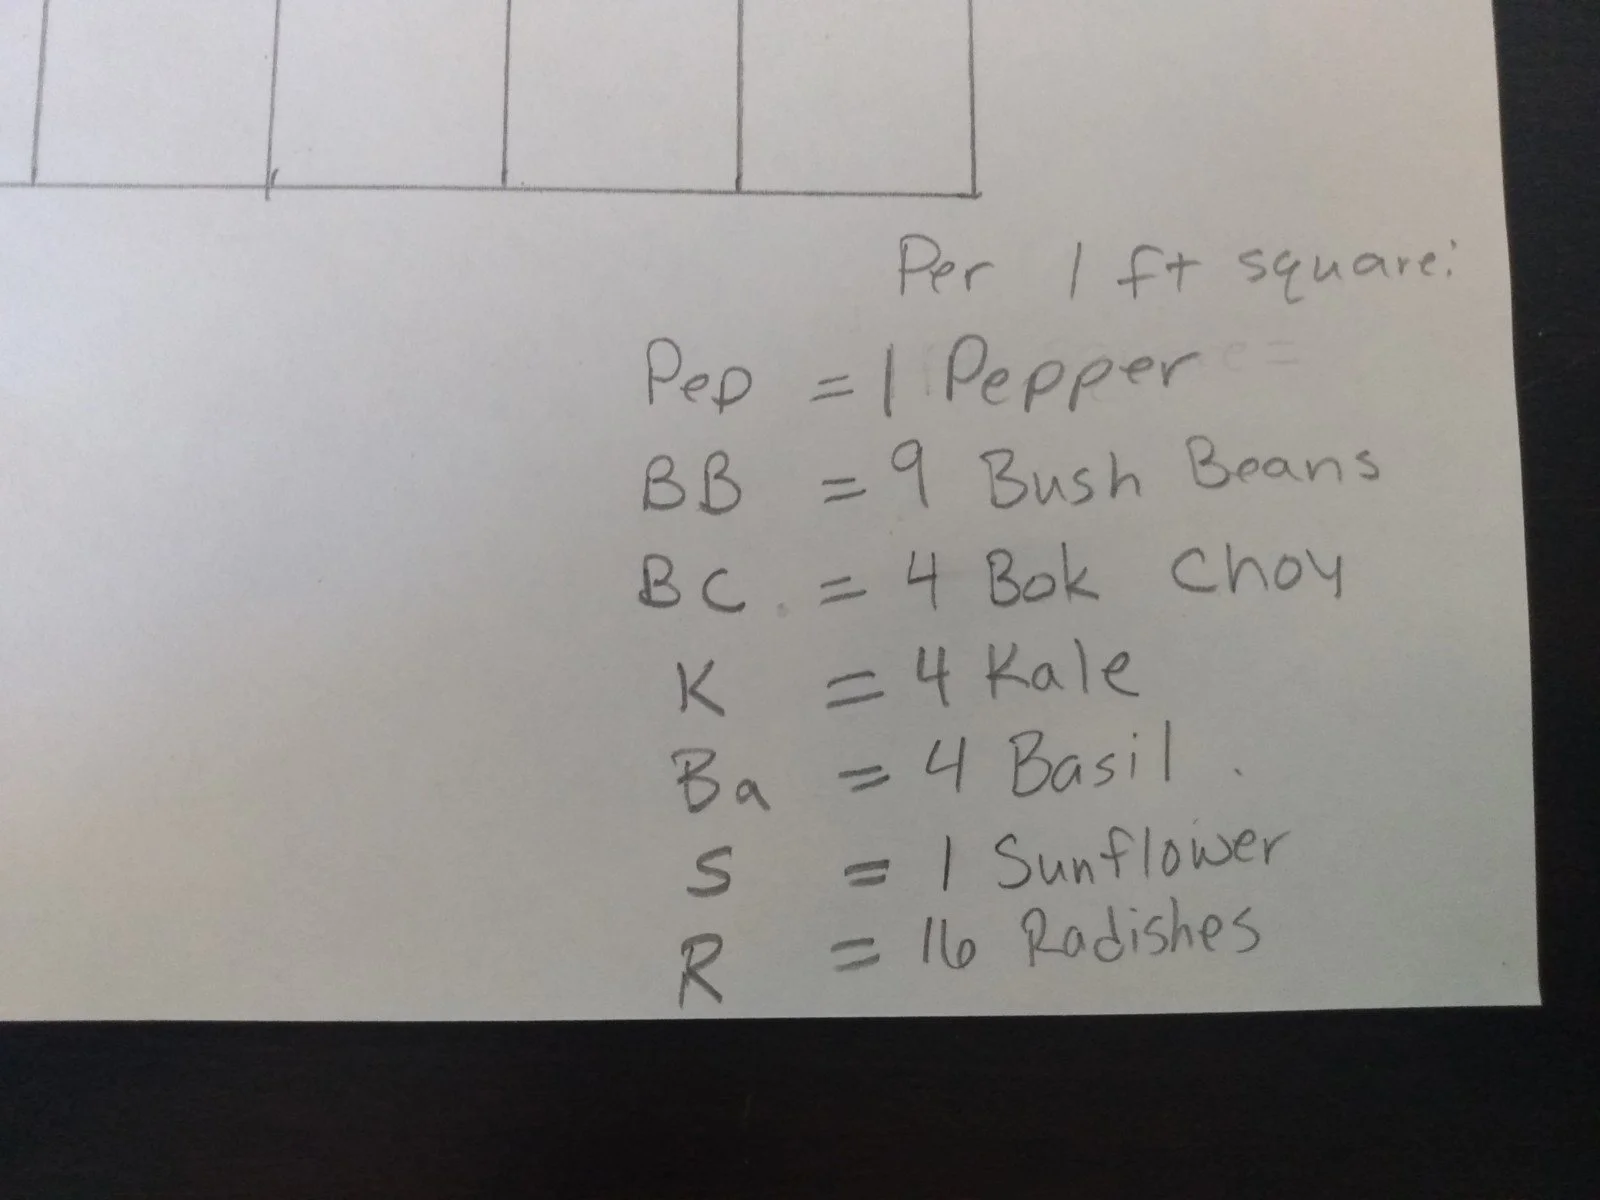 Per 1 ft square:
Pep = 1 Pepper
BB = 9 Bush Beans
BC = 4 Bok Choy
K = 4 Kale
Ba = 4 Basil
S = 1 Sunflower
R = 16 Radishes